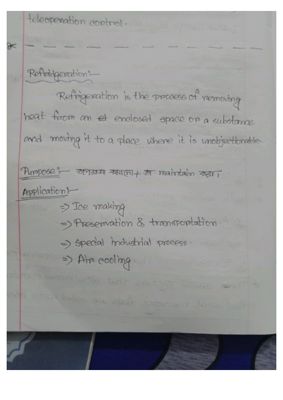 teleoperation control.
Refridgeration:-
Refrigeration is the process of removing
heat from an enclosed space or a substance
and moving it to a place where it is unobjectionable
Purpose:- तापमान + को maintain करना।
Application:-
⇒ Ice making
⇒ Preservation & transportation
⇒ Special industrial process
⇒ Air cooling